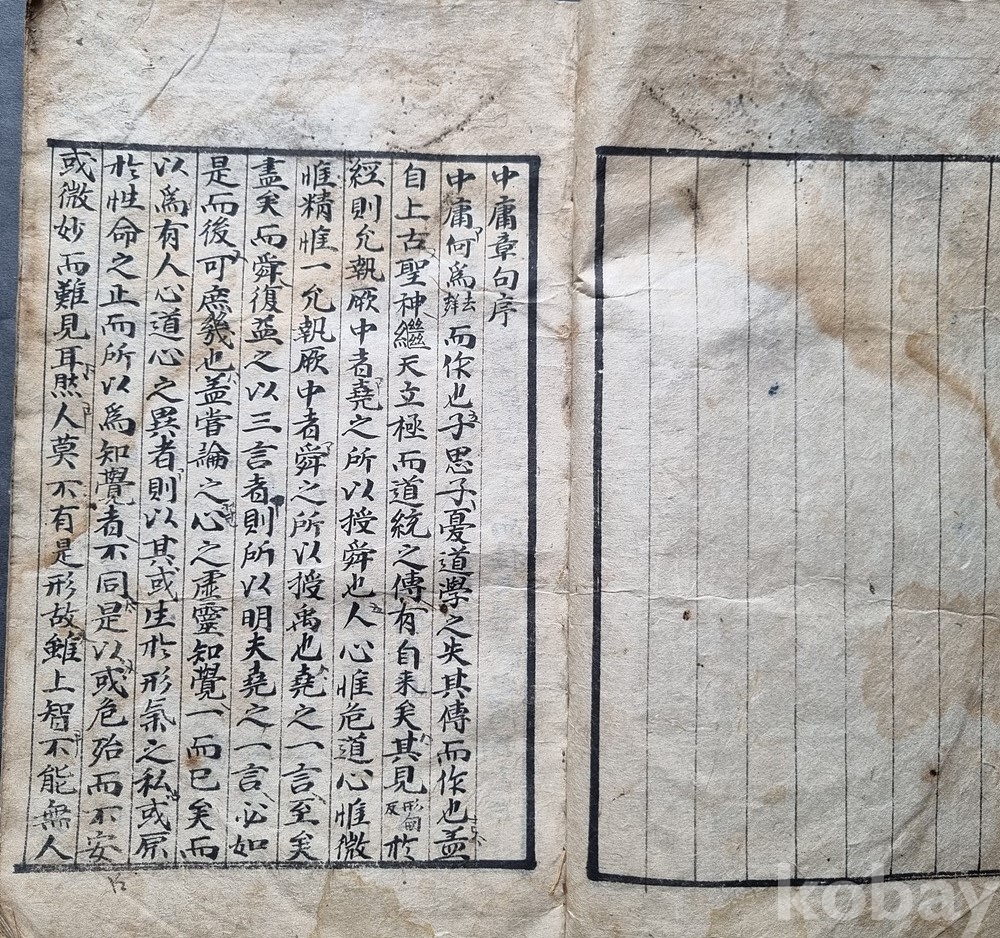 中庸章句序
中庸何爲去聲而作也子思子憂道學之失其傳而作也盖
自上古聖神繼天立極而道統之傳有自来矣其見形甸反於
經則允執厥中者堯之所以授舜也人心惟危道心惟微
惟精惟一允執厥中者舜之所以授禹也堯之一言至矣
盡矣而舜復益之以三言者則所以明夫堯之一言必如
是而後可庶幾也盖嘗論之心之虛靈知覺一而已矣而
以爲有人心道心之異者則以其或生於形氣之私或原
於性命之正而所以爲知覺者不同是以或危殆而不安
或微妙而難見耳然人莫不有是形故雖上智不能無人
kobay